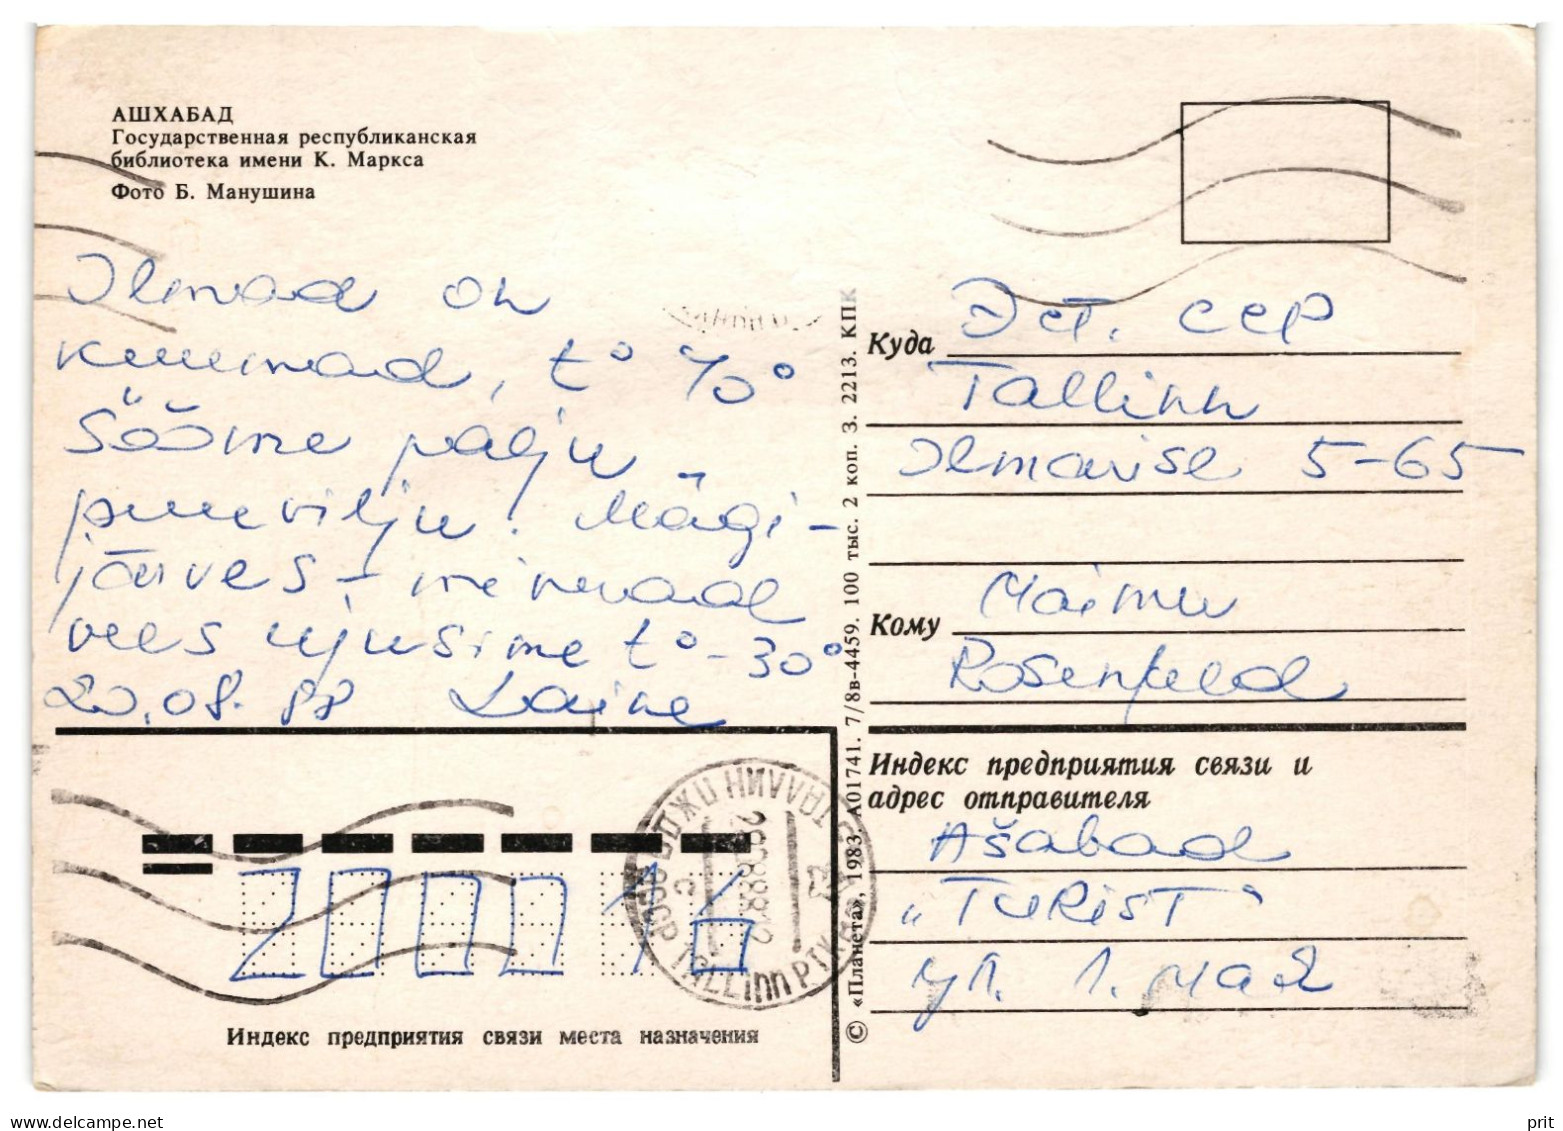 АШХАБАД
Государственная республиканская
библиотека имени К. Маркса
Фото Б. Манушина
Ilmad on
kuumad, t° 40°
Sööme palju
puuvilju. Mägi-
järves - mineraal
vees ujusime t° - 30°
20.08.88 Laine
Куда Эст. ССР
Tallinn
Ilmarise 5-65
Кому Maimu
Rosenfeld
Индекс предприятия связи и
адрес отправителя
Ašabad
„Turist"
ул. 1. мая
© «Планета», 1983. А01741. 7/8в-4459. 100 тыс. 2 коп. З. 2213. КПК
200016
TALLINN PTK
Индекс предприятия связи места назначения
prit